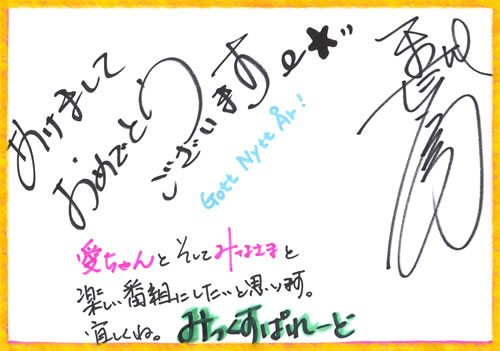 あけまして
おめでとう
ございます
Gott Nytt År!
愛ちゃんとそしてみなさまと
楽しい番組にしたいと思います。
宜しくね。みっくすぱれーど